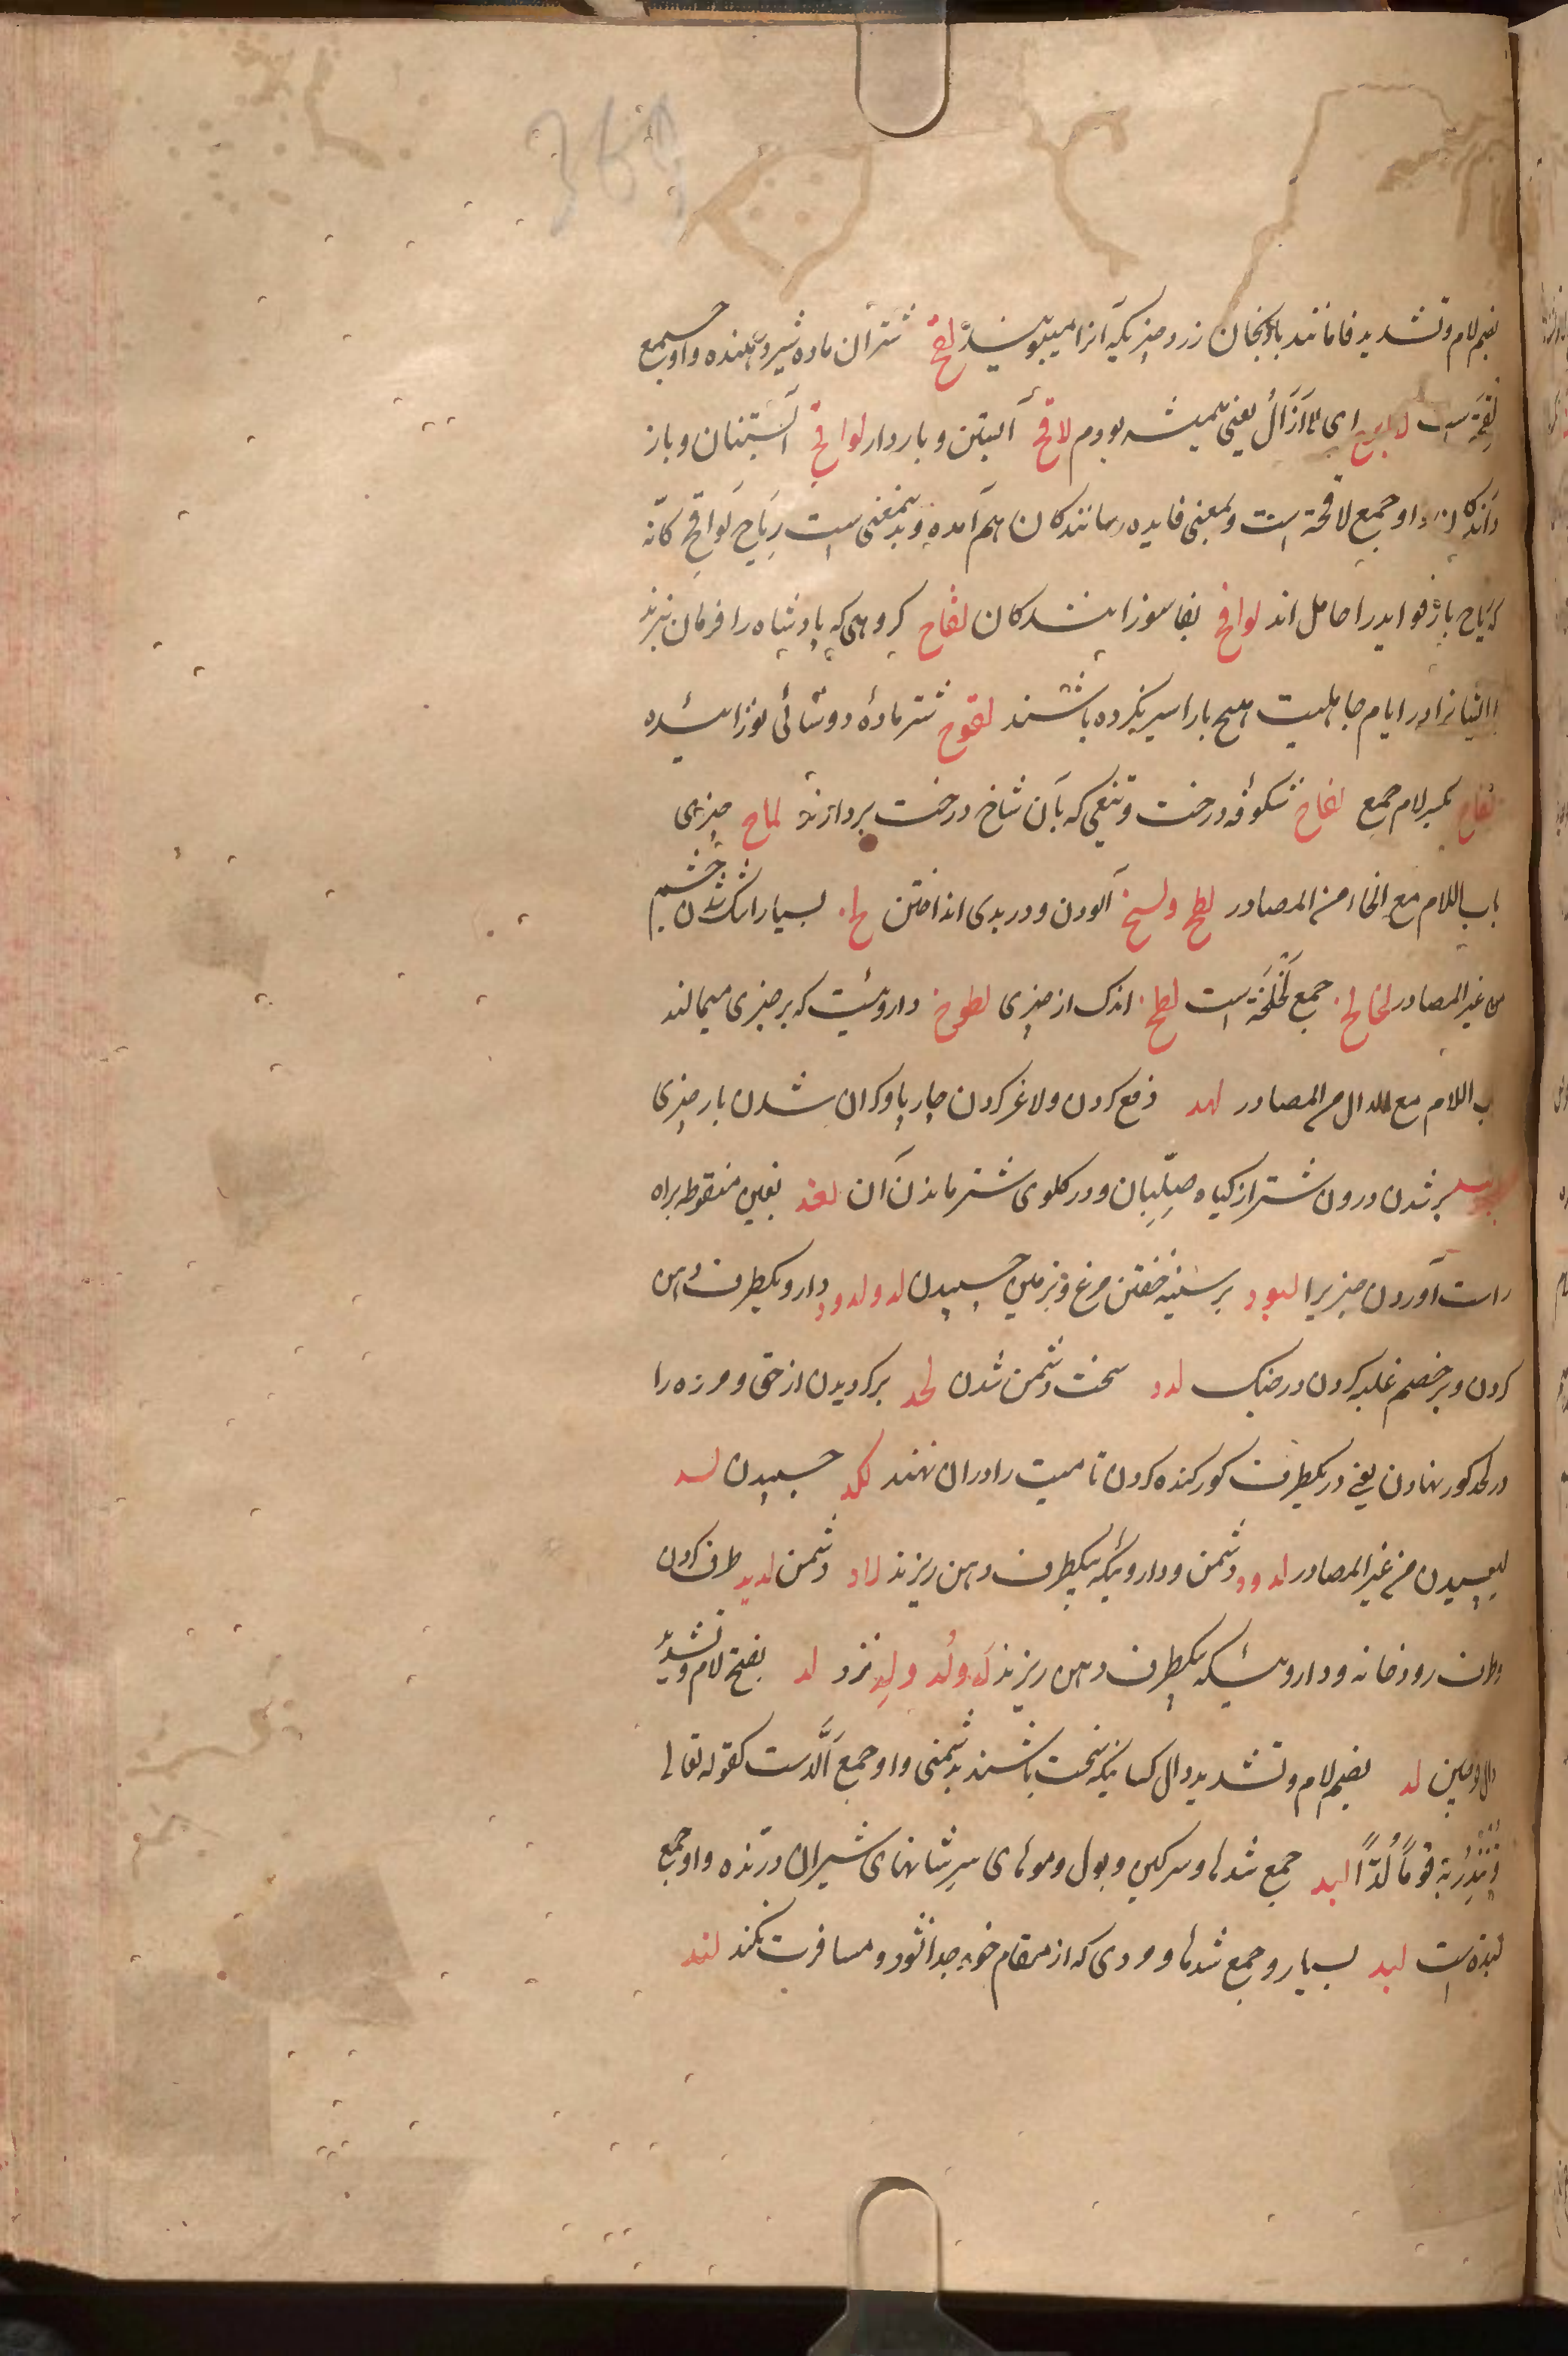 بضم لام و تشدید فا مانند بادنجان زرد چیزیکه آنرا میبویند لقح شتران ماده شیر دهنده و او جمع
لقحة است لا ابرح ای لا ازال یعنی همیشه بودم لاقح آبستن و باردار لواقح آبستنان و بار
دارندکان و او جمع لاقحة است و بمعنی فایده رسانندکان هم آمده و بدینمعنی است ریاح لواقح کانه
ریاح بار فواید را حامل اند لوافح بفا سوزانندکان لقاح کروهی که پادشاه را فرمان نبرند
یا ایشانرا در ایام جاهلیت هیچ بار اسیر نکرده باشند لقوح شتر مادهٔ دوشائی نوزائیده
لقاح بکسر لام جمع لقاح شکوفه درخت و تیغی که بآن شاخ درخت بردارند لماح چیزی
باب اللام مع الخاء من المصادر لطخ و لسخ آلودن و در بدی انداختن لخ بسیار اشک شدن چشم
من غیر المصادر لخالخ جمع لخلخة است لطخ اندک از چیزی لطوخ داروئیست که بر چیزی میمالند
باب اللام مع الدال من المصادر لهد دفع کردن و لاغر کردن چارپا و کران شدن بار چیزی
پر شدن درون شتر از کیاه صلیان و در کلوی شتر ماندن آن لغد بغین منقوطه براه
راست آوردن چیزیرا لبود بر سینه خفتن مرغ و بزمین چسپیدن لد و لدود دارو بیکطرف دهن
کردن و بر خصم غلبه کردن در جنک لدد سخت دشمن شدن لحد برکردیدن از حق و مرده را
در لحد کور نهادن یعنی در یکطرف کور کنده کردن تا میت را در آن نهند لکد چسپیدن لسد
لیسیدن من غیر المصادر لدود دشمن و داروئیکه بیکطرف دهن ریزند لداد دشمن لدید طرف کردن
و طرف رودخانه و داروئیکه بیکطرف دهن ریزند لَد و لُد و لِد نزد لد بفتح لام و تشدید
دال لد بضم لام و تشدید دال کسانیکه سخت باشند بدشمنی و او جمع اَلَدّست کقوله تعالی
وتنذر به قوماً لُدّاً لبد جمع شدها و سرکین و بول و موهای سر شانهای شیران درنده و او جمع
لبدة است لبد بسیار و جمع شدها و مردی که از مقام خود جدا نشود و مسافرت نکند لند